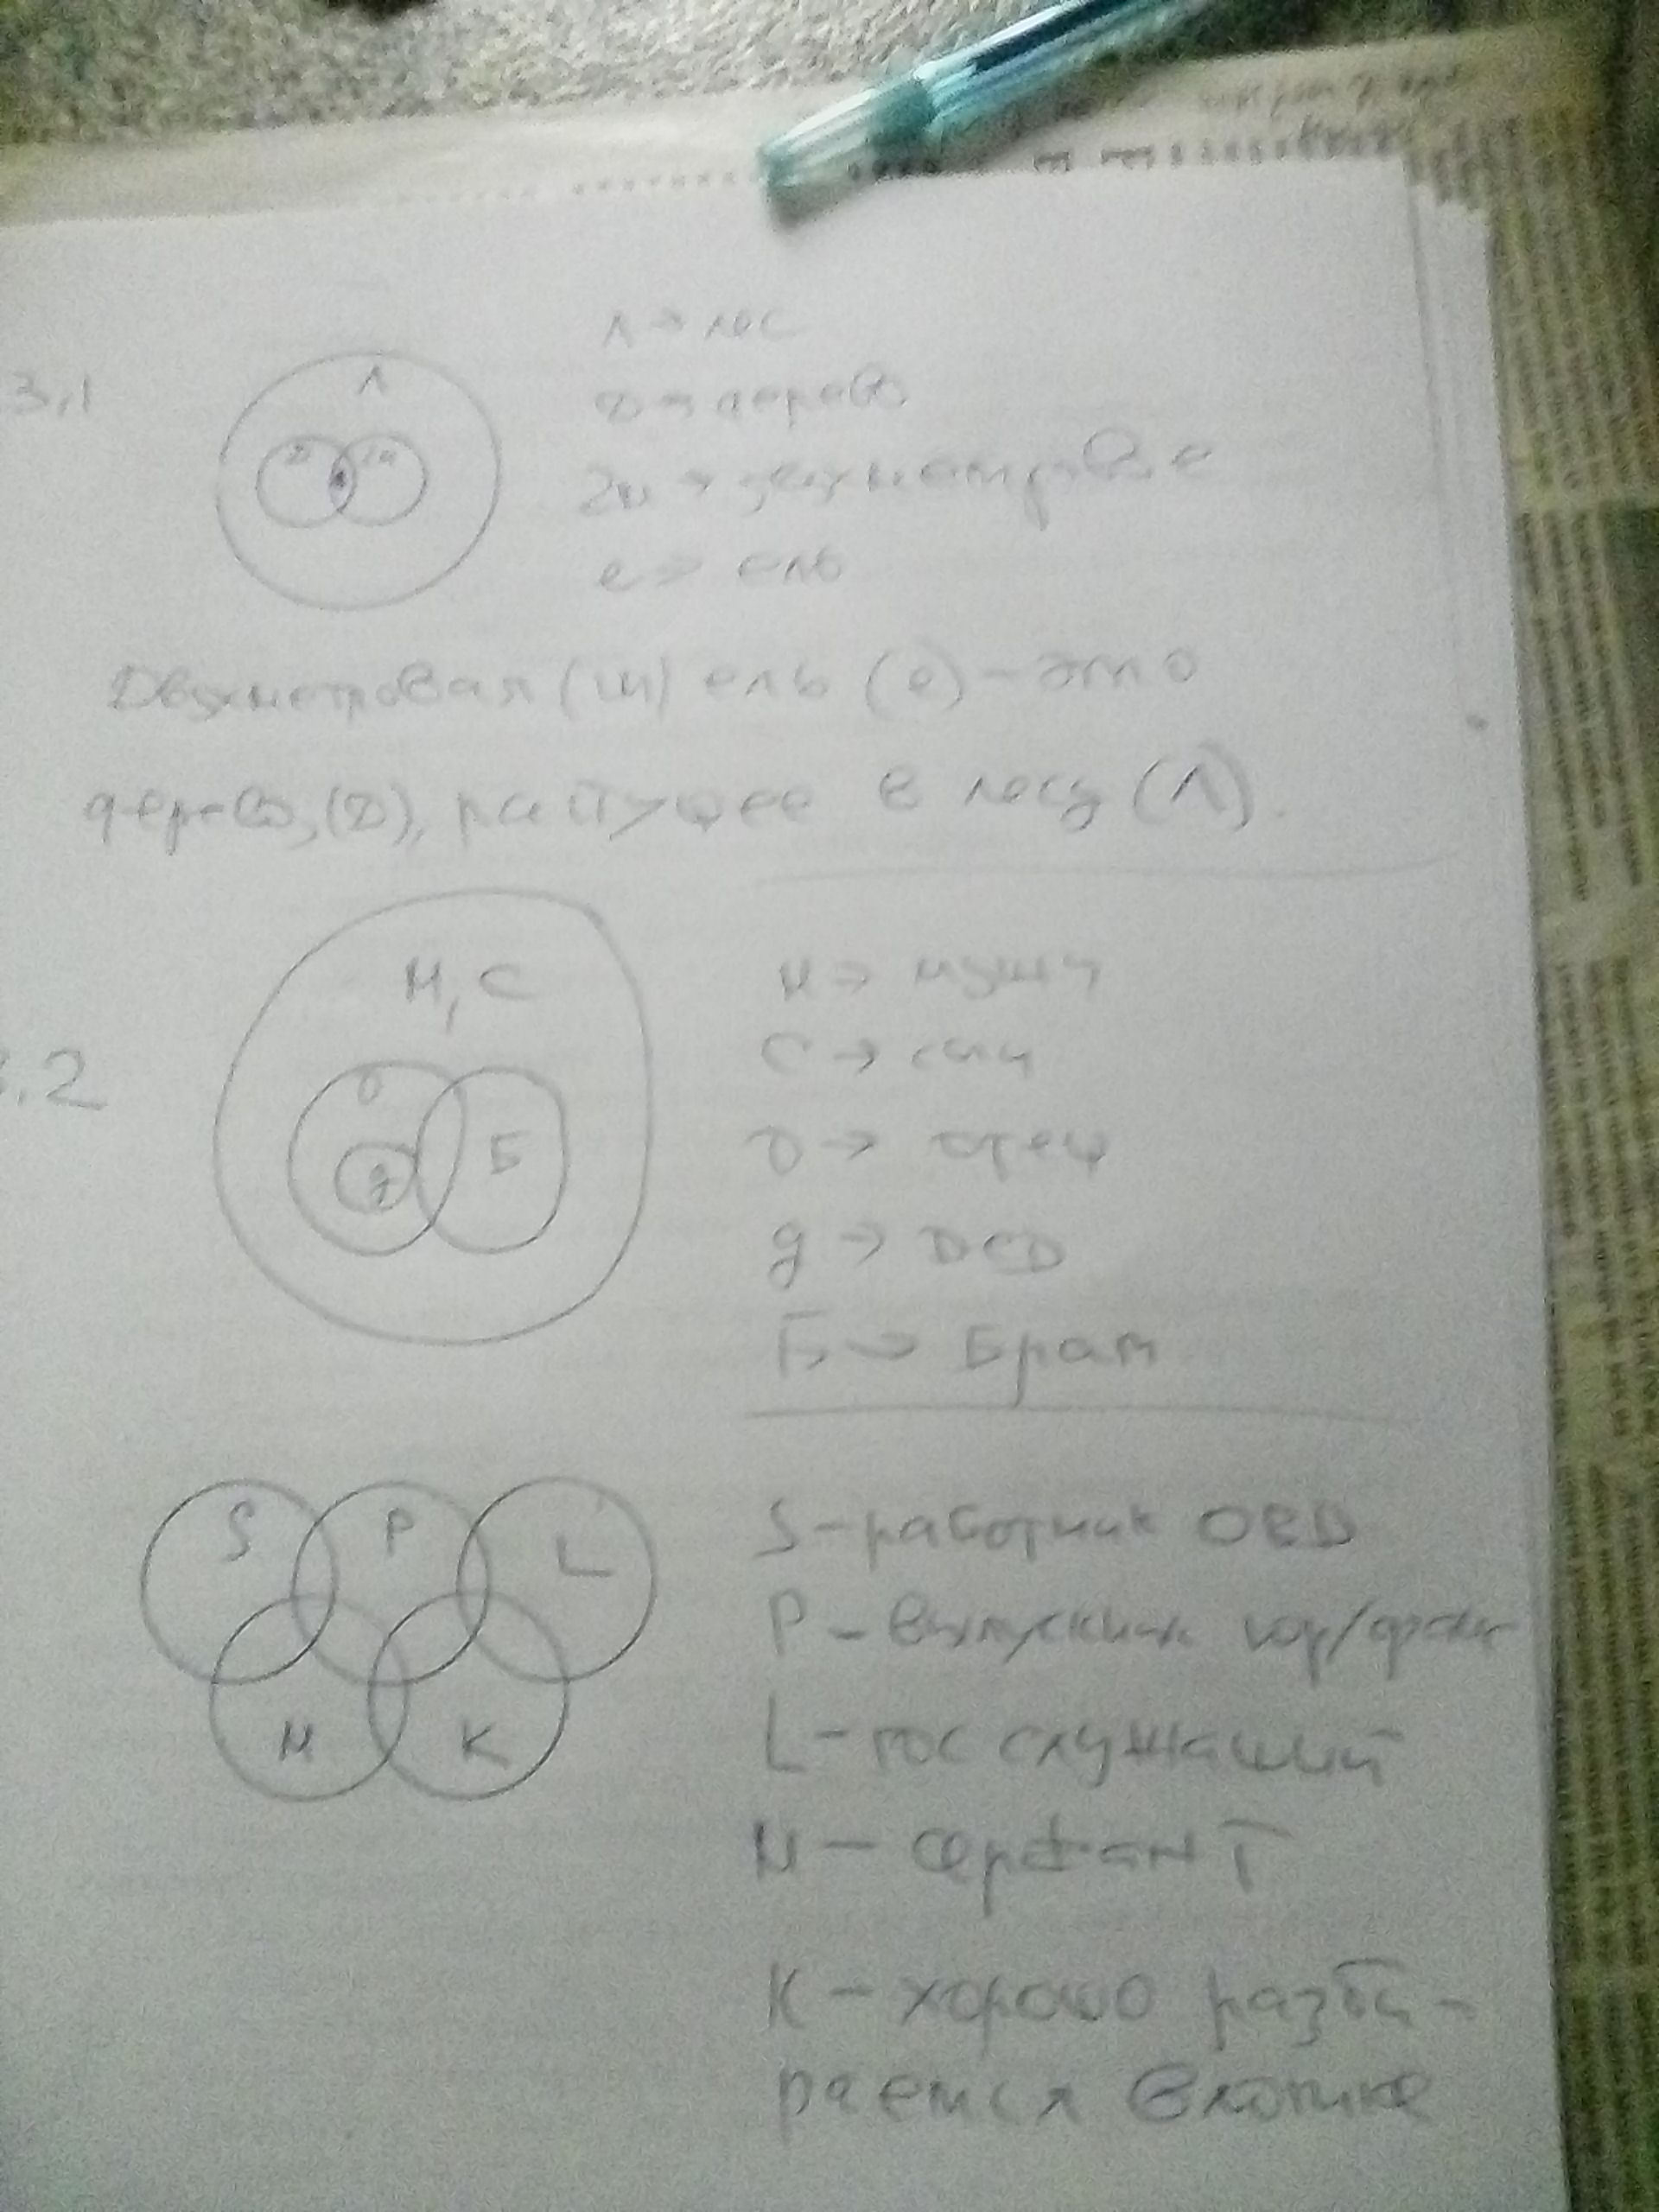 3.1
Л
Д 2м
е
Л → лес
Д → дерево
2м → двухметровые
е → ель
Двухметровая (2м) ель (е) - это
дерево, (Д), растущее в лесу (Л).
.2
М, С
О
Д
Б
М → мужч
С → сын
О → отец
g → DED
Б → Брат
S P L
М K
S - работник ОВD
P - выпускник юр/
L - гос служащий
М - сержант
K - хорошо разби-
рается в логике